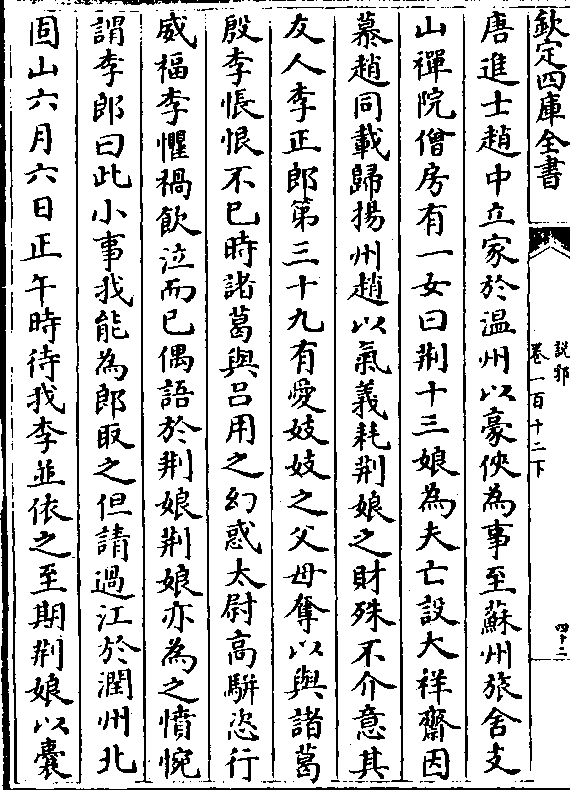 欽定四庫全書
說郛
卷一百十二下
四十二
唐進士趙中立家於温州以豪俠為事至蘇州旅舍支
山禪院僧房有一女曰荆十三娘為夫亡設大祥齋因
慕趙同載歸揚州趙以氣義耗荆娘之財殊不介意其
友人李正郎第三十九有愛妓妓之父母奪以與諸葛
殷李悵恨不已時諸葛與吕用之幻惑太尉高駢恣行
威福李懼禍飲泣而已偶語於荆娘荆娘亦為之憤惋
謂李郎曰此小事我能為郎取之但請過江於潤州北
固山六月六日正午時待我李並依之至期荆娘以囊